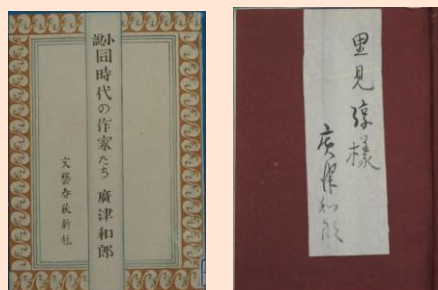 小説
同時代の作家たち 廣津和郎
文藝春秋新社
里見弴様
廣津和郎